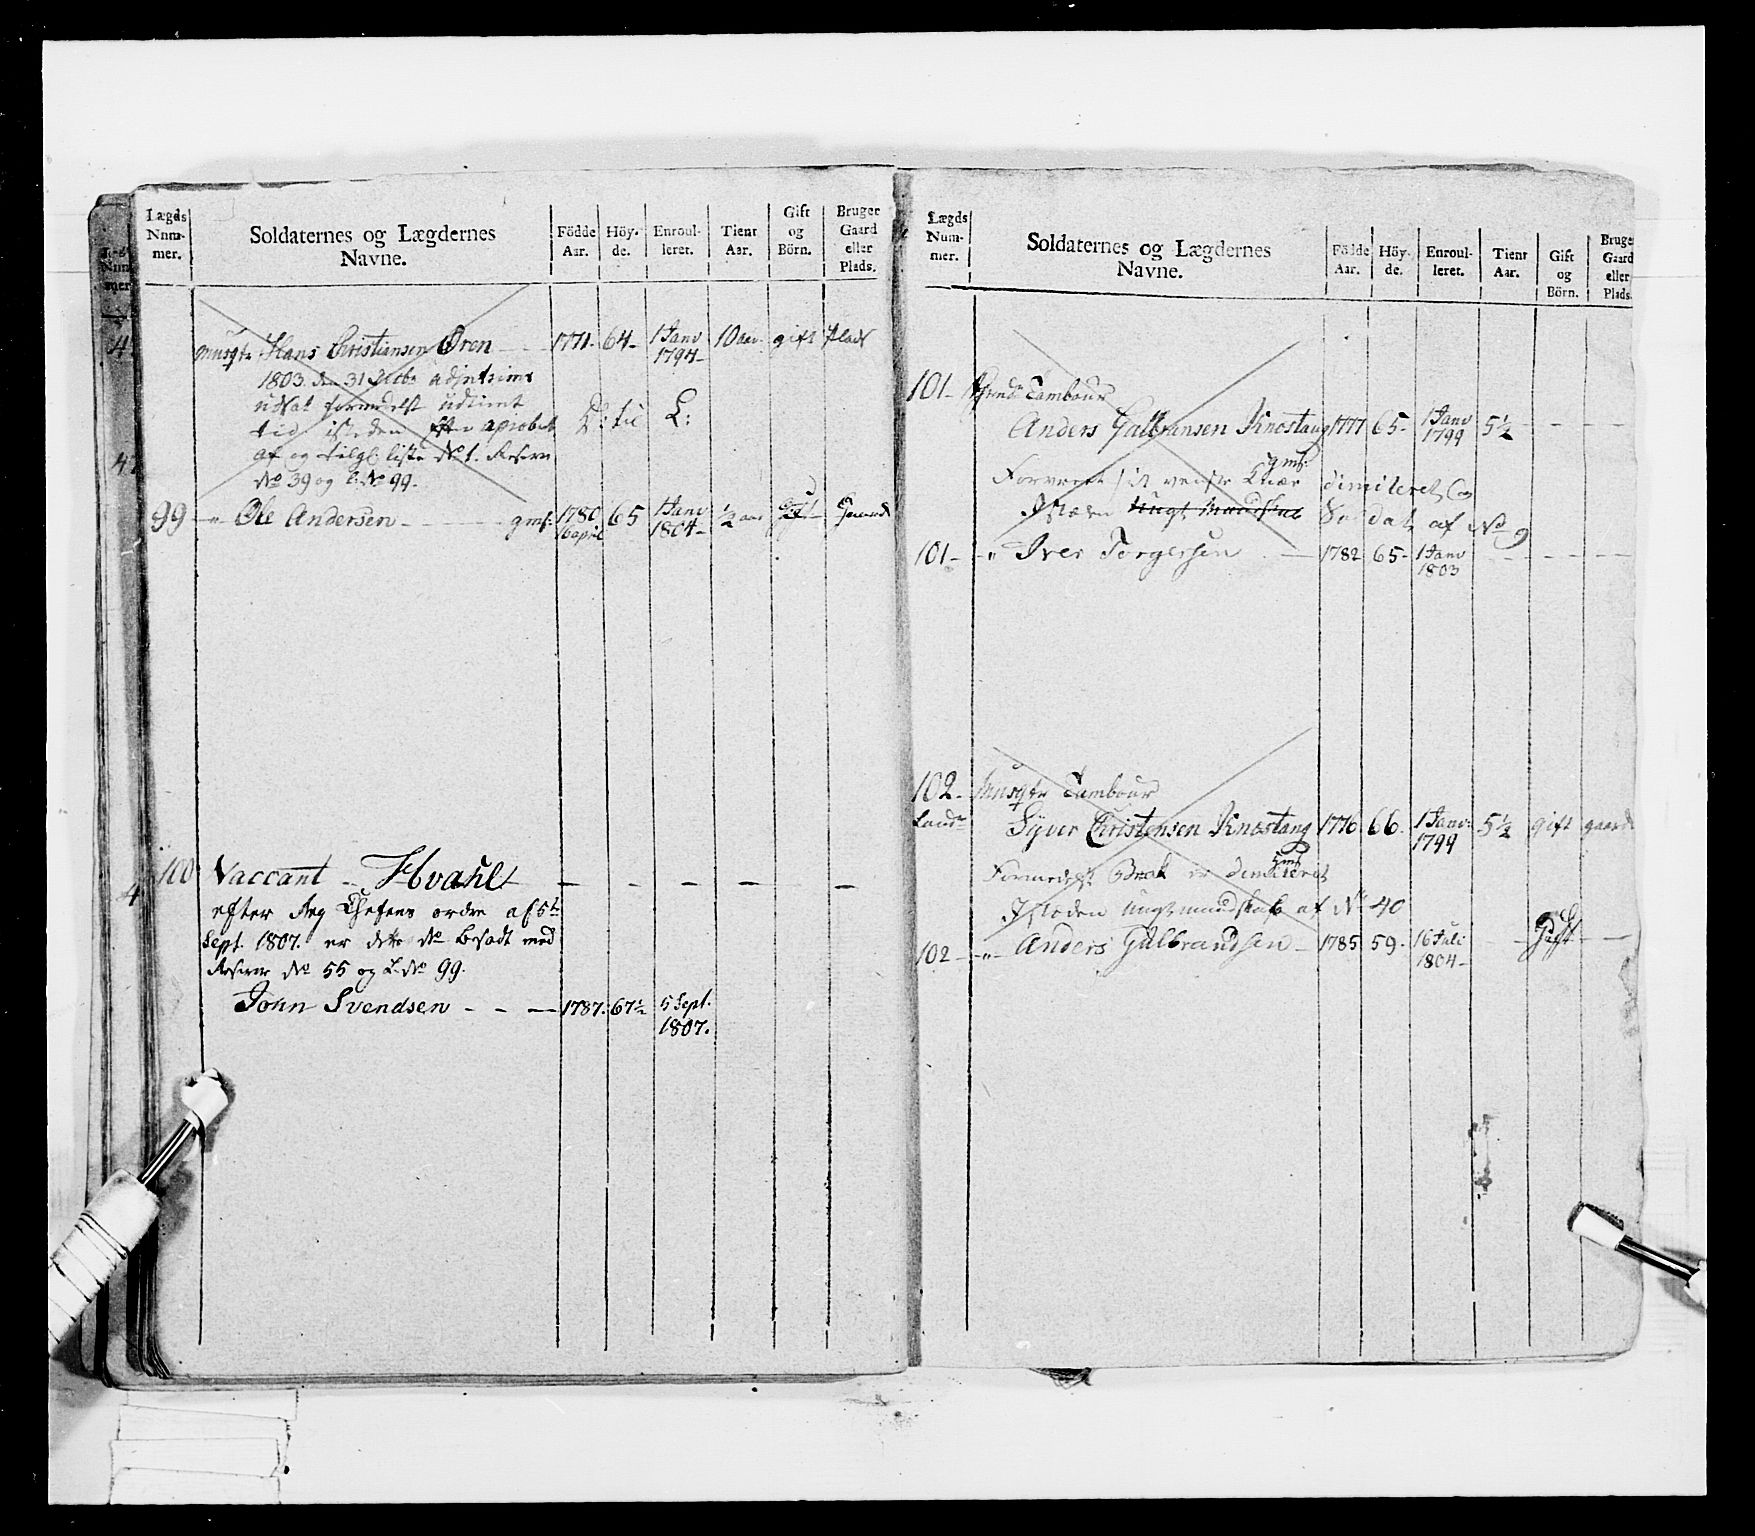 Lægds Nnm- mer.
Soldaternes og Lægdernes Navne.
Födde Aar.
Höy- de.
Enroul- leret.
Tient Aar.
Gift og Börn.
Bruger Gaard eller Plads.
Musqtr Hans Christiansen Øren 1771. 64 1 Janv 1794 10 aar gift Plads
1803 den 31 Decbr
tid isteden aprobert
af og tilgl. liste No 1. Reserv
No 39 og L. No 99.
99 " Ole Andersen gms: 1780 16 april 65 1 Janv 1804 ½ aar Gaard
100 Vaccant Hvahl
efter Reg Chefens ordre af 5te
Sept. 1807. er dette No besadt med
Reserve No 55 og L. No 99.
John Svendsen 1787. 67½ 5 Sept. 1807.
Lægds Num- mer.
Soldaternes og Lægdernes Navne.
Födde Aar.
Höy- de.
Enroul- leret.
Tient Aar.
Gift og Börn.
Bruge Gaard eller Plads.
101 Grend: Tambour
Anders Gulbransen Knostang 1777 65 1 Janv 1799 5½
gms:
dimiteret
Soldat af No 9
101 " Iver Torgersen 1782 65 1 Janv 1803
102 Musqtr Tambour
Landv Syver Christensen Knostang 1776 66 1 Janv: 1799 5½ gift gaard
Formedelst Brok er dimiteret
Isteden ungt mandskab af No 40
102 " Anders Gulbrandsen 1785 59 16 Juli 1804 Gift